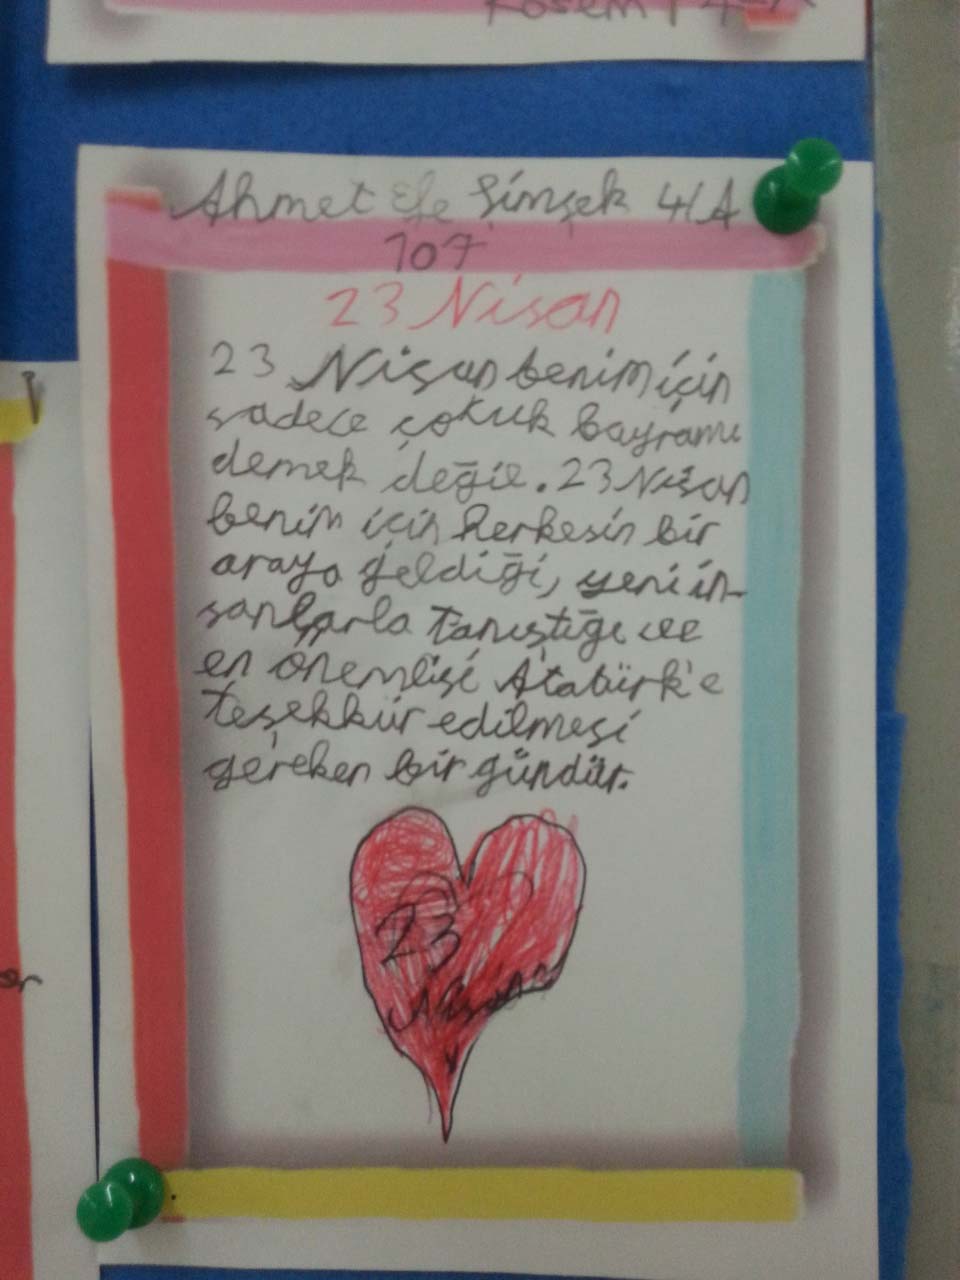 Kösem 4-A
Ahmet Efe Şimşek 4/A
107
23 Nisan
23 Nisan benim için
sadece çokuk bayramı
demek değil. 23 Nisan
benim için herkesin bir
araya geldiği, yeni in-
sanlarla tanıştığı ve
en önemlisi Atatürk'e
teşekkür edilmesi
gereken bir gündür.
23
Nisan